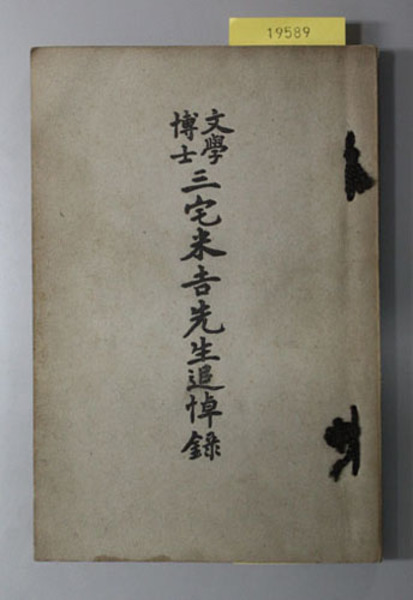 19589
文學博士三宅米吉先生追悼錄